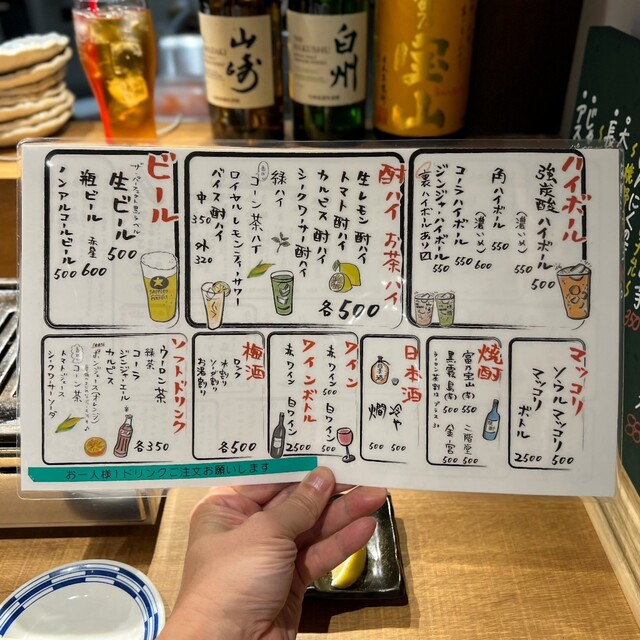 山崎
白州
HAKUSHU
宝山
ハイボール
強炭酸ハイボール 500
(濃いめ) 550
角ハイボール 550
(濃いめ) 600
ジンジャーハイボール 550
コーラハイボール 550
裏ハイボールあり〼
酎ハイ お茶ハイ
生レモン酎ハイ
トマト酎ハイ
カルピス酎ハイ
シークワーサー酎ハイ
緑ハイ
コーン茶ハイ
ロイヤルレモンティーサワー
バイスサワー酎ハイ
中 350 外 320
各500
ビール
生ビール 500
瓶ビール 赤星 600
ノンアルコールビール 500
マッコリ
ソウルマッコリ 500
マッコリボトル 2500
焼酎
富乃宝山(芋) 550
黒霧島(芋) 500
二階堂 500
金宮 500
日本酒
冷や 500
燗 500
ワイン
赤ワイン 500
白ワイン 500
ワインボトル
赤ワイン
白ワイン
2500
梅酒
ロック
水割り
ソーダ割り
お湯割り
各500
ソフトドリンク
ウーロン茶
緑茶
コーラ
ジンジャーエール
カルピス
コーン茶
トマトジュース
シークワーサーソーダ
各350
お一人様1ドリンクご注文お願いします